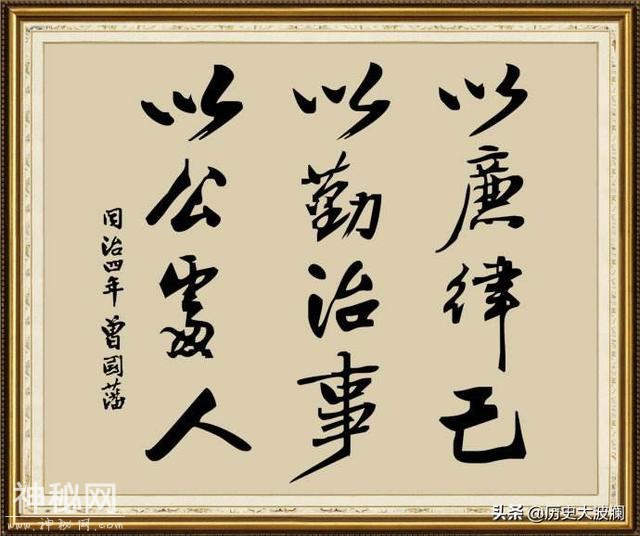 以廉律己
以勤治事
以公處人
同治四年 曾國藩
神秘网
www.神秘网.com
头条 @历史大波澜